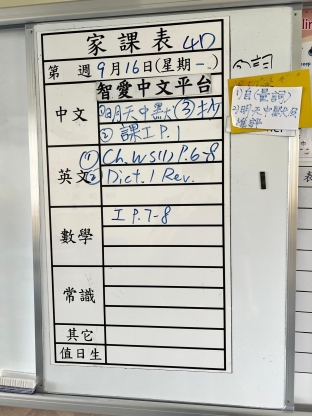 家課表 4D
第 週 9月16日(星期一)
智愛中文平台
中文
明天中默(3)抄
② 課工 P.1
英文
(1) Ch. WS(1) P.6-8
② Dict. 1 Rev.
數學
工 P.7-8
常識
其它
值日生
詞
(量詞)
明天中默